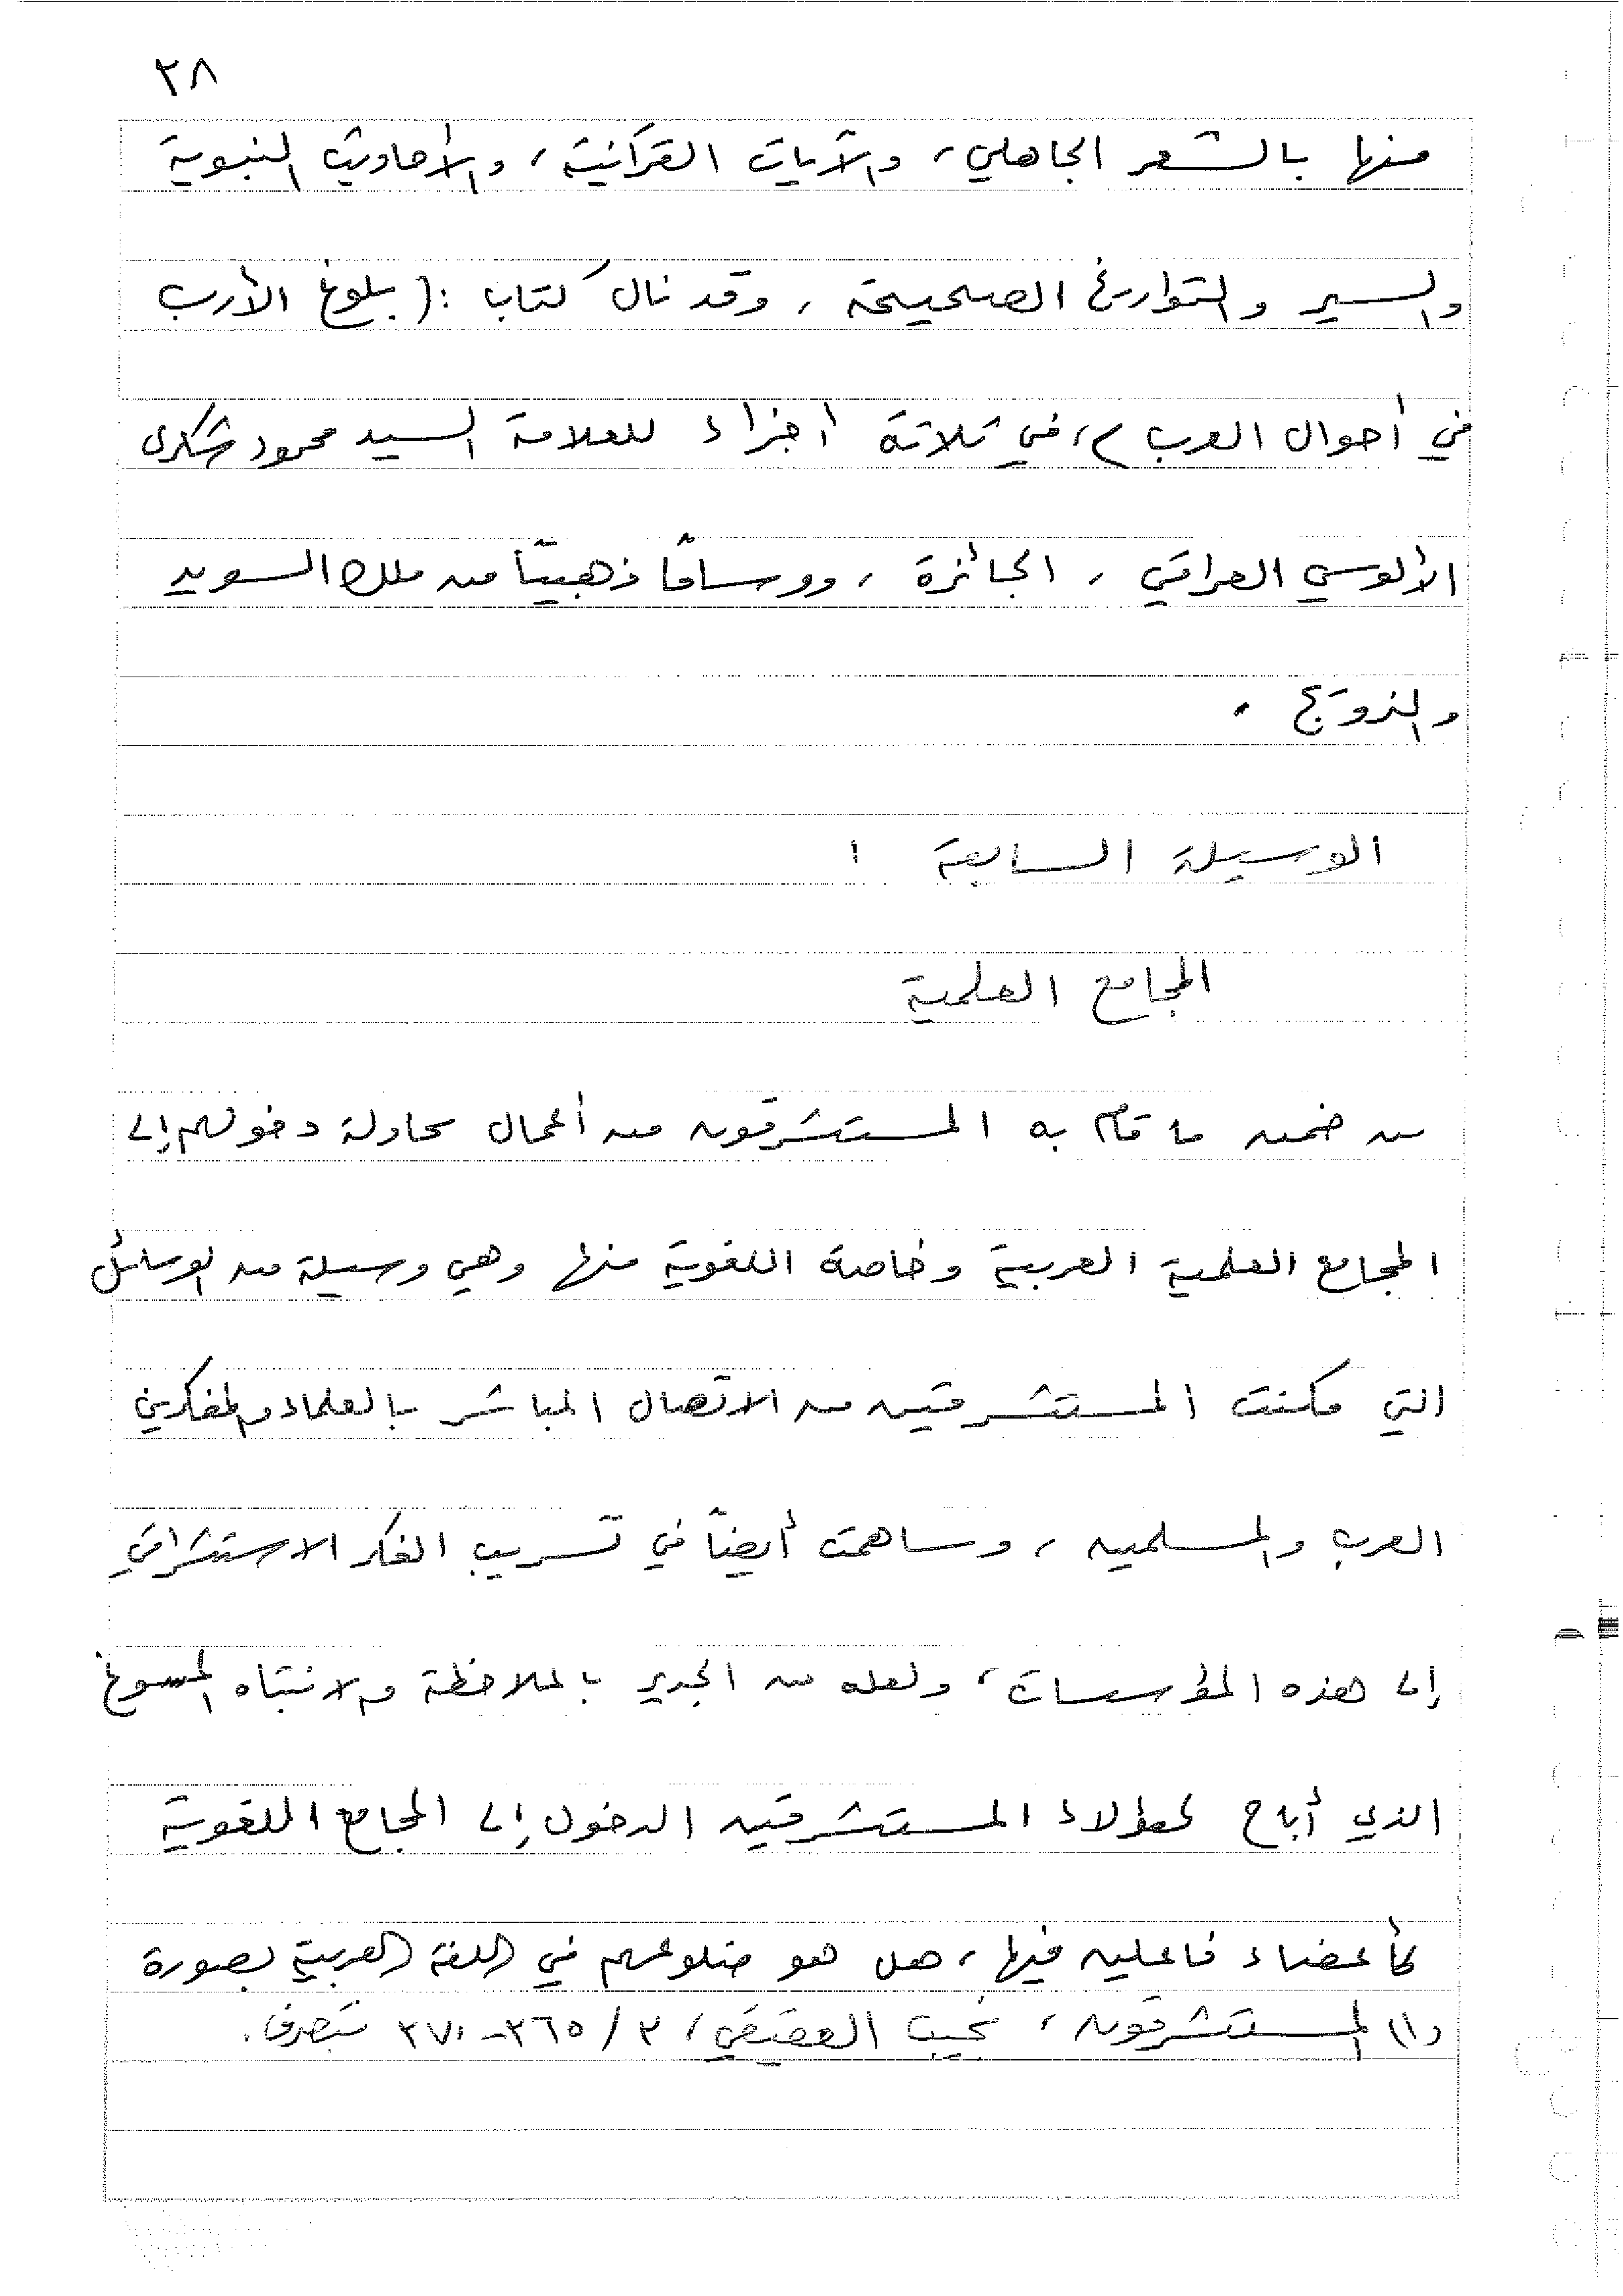 ٢٨
منها بالشعر الجاهلي، والآيات القرآنية، والأحاديث النبوية
والسير والتواريخ الصحيحة، وقد نال كتاب :( بلوغ الأرب
في أحوال العرب )، في ثلاثة أجزاء للعلامة السيد محمود شكري
الألوسي العراقي، الجائزة، ووساماً ذهبيّاً من ملك السويد
والنروج .
الوسيلة السابعة :
المجامع العلمية
من ضمن ما قام به المستشرقون من أعمال محاولة دخولهم إلى
المجامع العلمية العربية وخاصة اللغوية منها وهي وسيلة من الوسائل
التي مكنت المستشرقين من الاتصال المباشر بالعلماء والمفكرين
العرب والمسلمين، وساهمت أيضاً في تسريب الفكر الاستشراقي
إلى هذه المؤسسات، ولعله من الجدير بالملاحظة والانتباه المسوغ
الذي أباح لهؤلاء المستشرقين الدخول إلى المجامع اللغوية
كأعضاء فاعلين فيها، هل هو ضلوعهم في اللغة العربية بصورة
(١) المستشرقون، نجيب العقيقي، ٣/ ٣٦٥-٣٧٠ بتصرف.